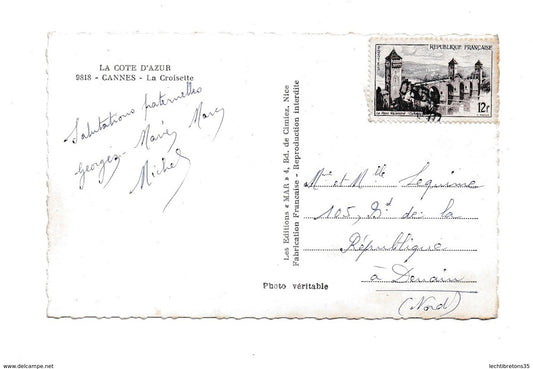 LA COTE D'AZUR
9818 - CANNES - La Croisette
Salutations fraternelles
Georges Marie Marcy
Michel
Les Editions « MAR » 4, Bd. de Cimiez, Nice
Fabrication Française - Reproduction interdite
Photo véritable
REPUBLIQUE FRANÇAISE
POSTES
12F
Le Pont Valentré - Cahors
Mr et Mlle Lequime
105, Bd de la
République
à Denain
(Nord)
https://www.delcampe.net
lechtibretons35